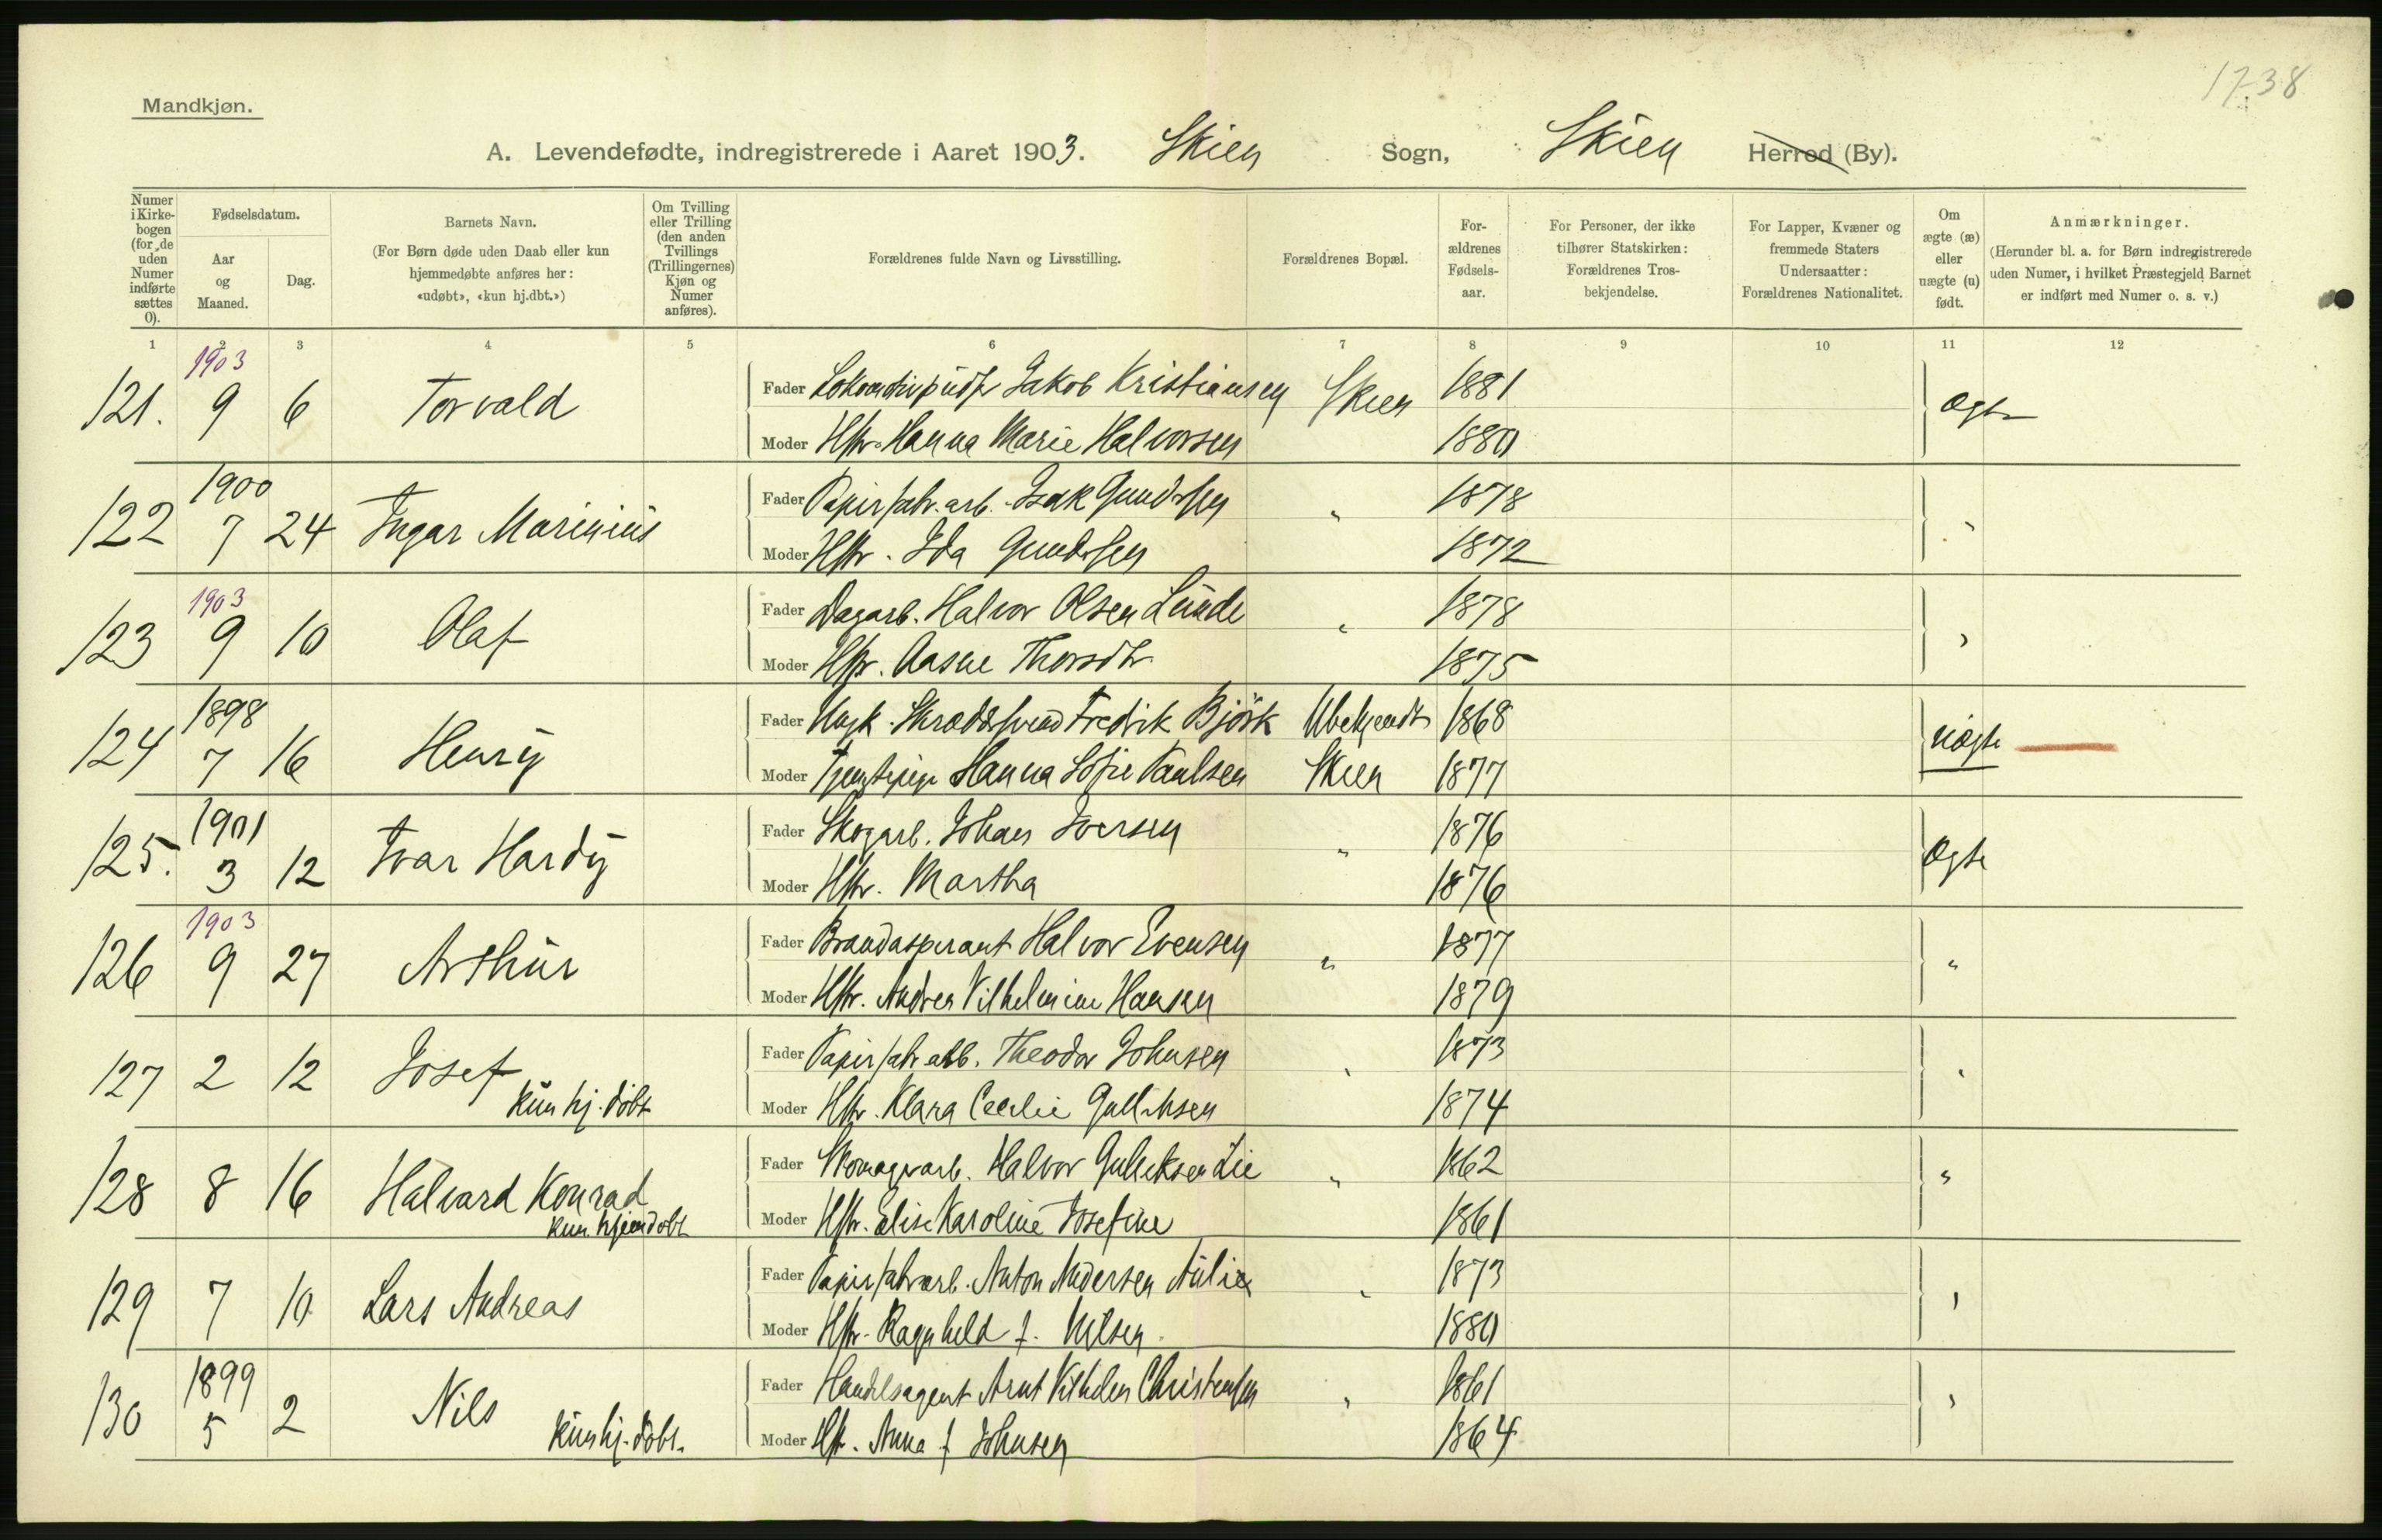 1738
Mandkjøn.
A. Levendefødte, indregistrerede i Aaret 1903. Skien Sogn, Skien Herred (By).
Numer i Kirkebogen (for de uden Numer indførte sættes 0).
Fødselsdatum.
Aar og Maaned.
Dag.
Barnets Navn.
(For Børn døde uden Daab eller kun hjemmedøbte anføres her: «udøbt», «kun hj.dbt.»)
Om Tvilling eller Trilling (den anden Tvillings (Trillingernes) Kjøn og Numer anføres).
Forældrenes fulde Navn og Livsstilling.
Forældrenes Bopæl.
For-ældrenes Fødsels-aar.
For Personer, der ikke tilhører Statskirken: Forældrenes Tros-bekjendelse.
For Lapper, Kvæner og fremmede Staters Undersaatter: Forældrenes Nationalitet.
Om ægte (æ) eller uægte (u) født.
Anmærkninger.
(Herunder bl. a. for Børn indregistrerede uden Numer, i hvilket Præstegjeld Barnet er indført med Numer o. s. v.)
1 2 3 4 5 6 7 8 9 10 11 12
121. 1903 9 6 Torvald
Fader Jakob Kristiansen Skien 1881 Ægte
Moder Hstr. Hanna Marie Halvorsen 1880
122 1900 7 24 Ingar Marinius
Fader Papirfabr.arb. Isak Gundersen " 1878 "
Moder Hstr. Ida Gundersen 1872
123 1903 9 10 Olaf
Fader Dagarb. Halvor Olsen Lunde " 1878 "
Moder Hstr. Aasne Thorsdtr 1875
124 1898 7 16 Henry
Fader Ungk. Skræddersvend Fredrik Björk Ubekjendt 1868 uægte
Moder Tjenestepige Hanna Sofie Paulsen Skien 1877
125. 1901 3 12 Ivar Hardy
Fader Skogarb. Johan Iversen " 1876 Ægte
Moder Hstr. Martha 1876
126 1903 9 27 Arthur
Fader Brandaspirant Halvor Evensen " 1877 "
Moder Hstr. Andrea Vilhelmine Hansen 1879
127 2 12 Josef kun hj. döbt
Fader Papirfabr.arb. Theodor Johnsen " 1873 "
Moder Hstr. Klara Cecilie Gulliksen 1874
128 8 16 Halvard Konrad kun hjemdöbt
Fader Skomagerarb. Halvor Gulliksen Lie " 1862 "
Moder Hstr. Elise Karoline Josefine 1861
129 7 10 Lars Andreas
Fader Papirfabrarb. Anton Andersen Aulie " 1873 "
Moder Hstr. Ragnhild f. Nilsen 1880
130 1899 5 2 Nils kun hj. döbt.
Fader Handelsagent Arnt Vilhelm Christensen " 1861 "
Moder Hstr. Anna f Johnsen 1864